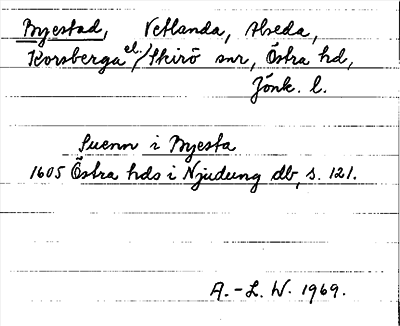 Byestad, Vetlanda, Alseda,
Korsberga el./Skirö snr, Östra hd,
Jönk. l.
Suenn i Byesta
1605 Östra hds i Njudung db, s. 121.
A.-L. W. 1969.